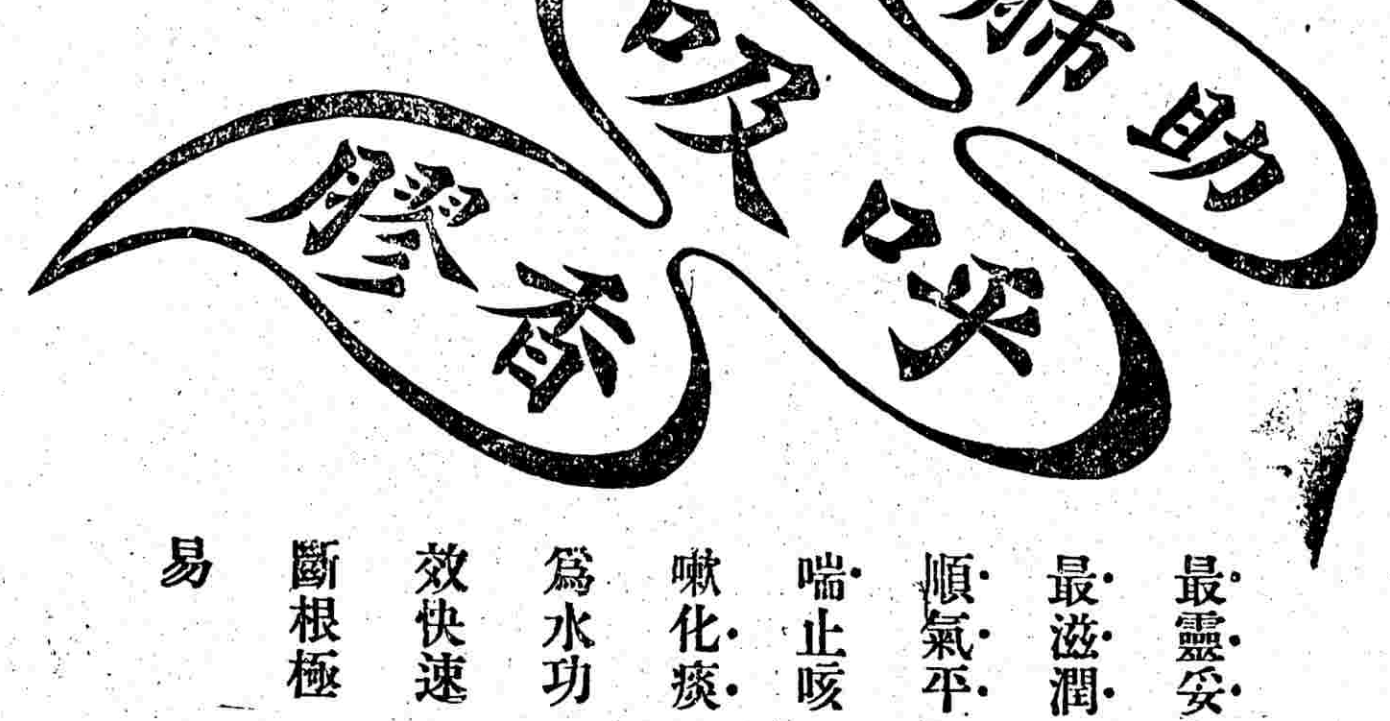 助肺
呼吸
香膠
最靈妥
最滋潤
順氣平
喘止咳
嗽化痰
為水功
效快速
斷根極
易